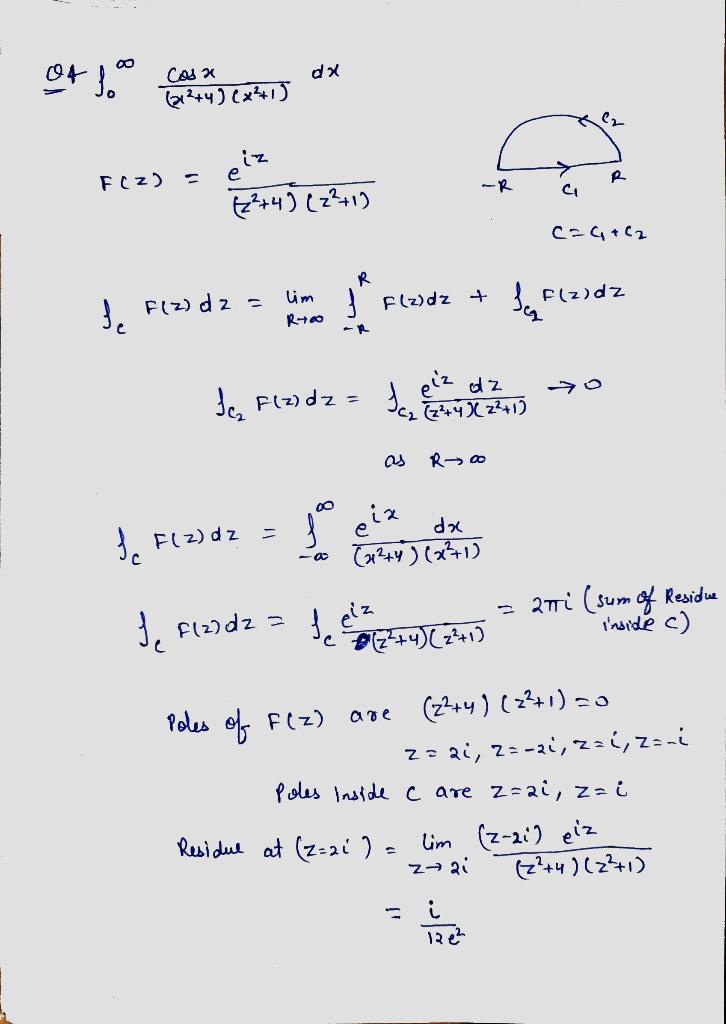 Q4 ∫₀^∞ cos x / (x²+4)(x²+1) dx
C₂
-R C₁ R
F(z) = e^{iz} / (z²+4)(z²+1)
C = C₁ + C₂
∫_C F(z) dz = lim_{R→∞} ∫_{-R}^{R} F(z) dz + ∫_{C₂} F(z) dz
∫_{C₂} F(z) dz = ∫_{C₂} e^{iz} dz / (z²+4)(z²+1) → 0
as R → ∞
∫_C F(z) dz = ∫_{-∞}^{∞} e^{ix} dx / (x²+4)(x²+1)
∫_C F(z) dz = ∫_C e^{iz} / (z²+4)(z²+1) = 2πi (sum of Residue
inside C)
Poles of F(z) are (z²+4)(z²+1) = 0
z = 2i, z = -2i, z = i, z = -i
Poles Inside C are z = 2i, z = i
Residue at (z=2i) = lim_{z→2i} (z-2i) e^{iz} / (z²+4)(z²+1)
= i / 12e²